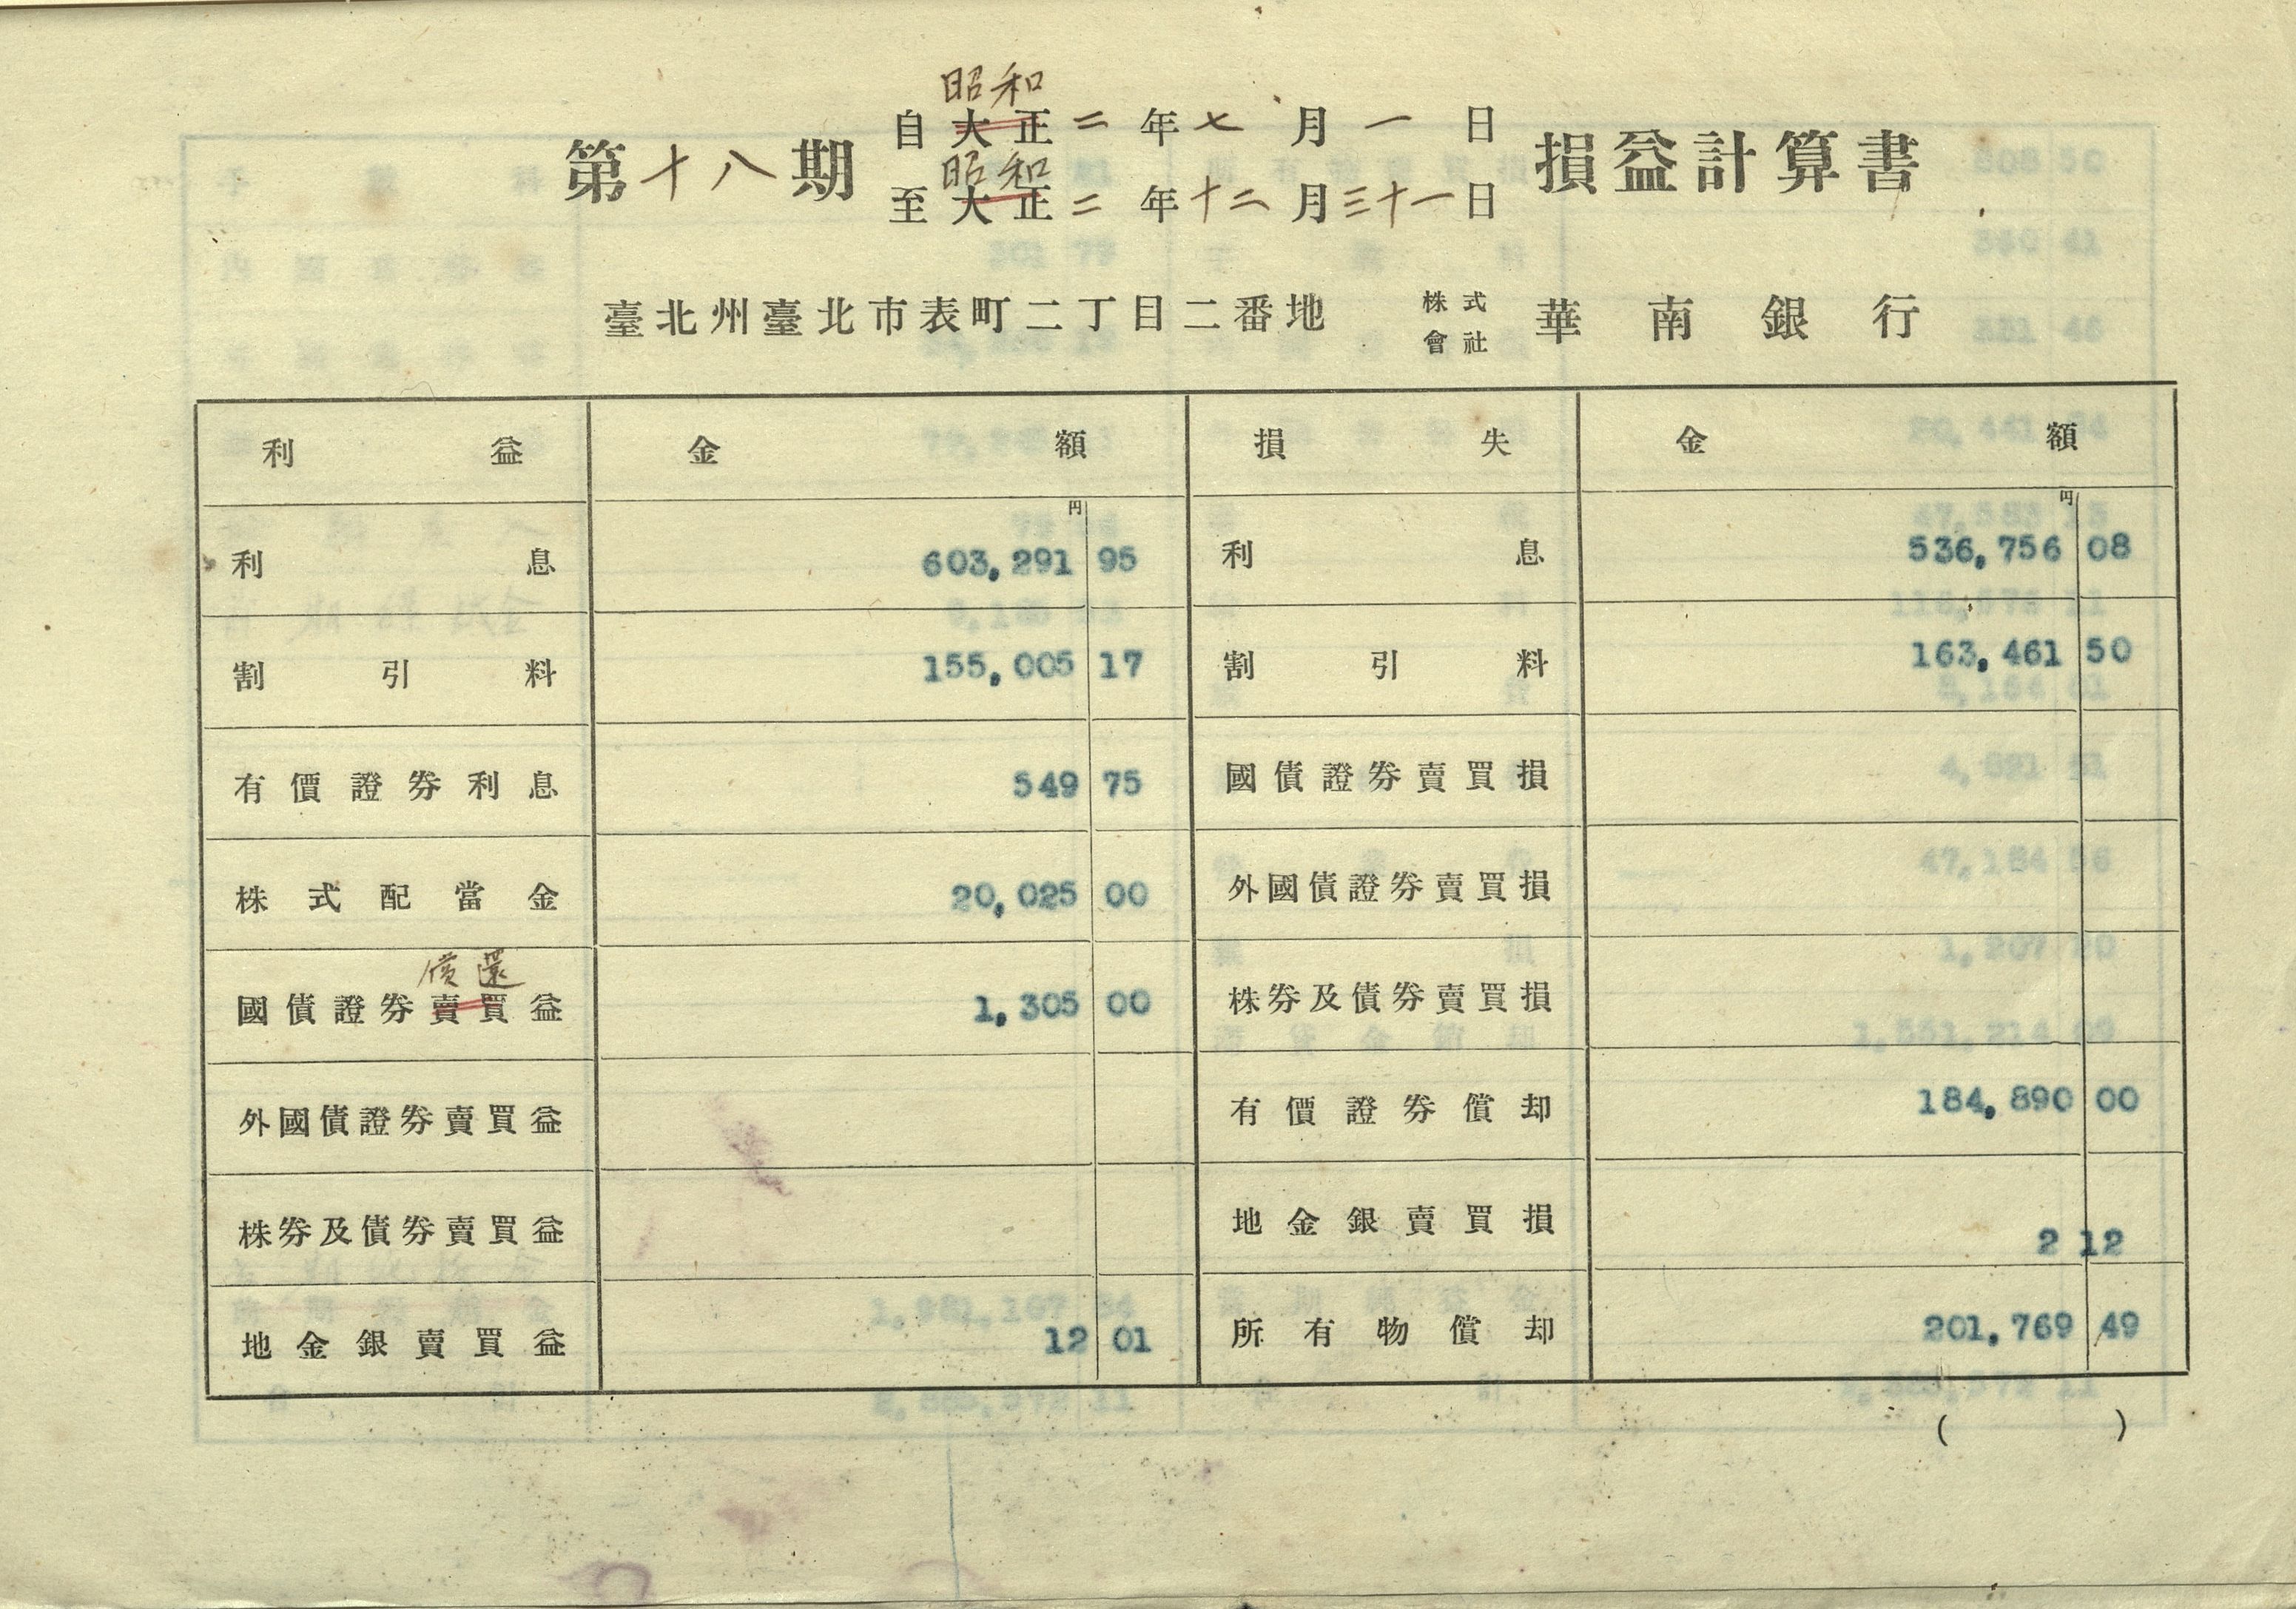 第十八期 自昭和大正二年七月一日 損益計算書
至昭和大正二年十二月三十一日
臺北州臺北市表町二丁目二番地 株式會社 華南銀行
利益 金額 損失 金額
円 円
利息 603,291 95 利息 536,756 08
割引料 155,005 17 割引料 163,461 50
有價證券利息 549 75 國債證券賣買損
株式配當金 20,025 00 外國債證券賣買損
償還
國債證券賣買益 1,305 00 株券及債券賣買損
外國債證券賣買益 有價證券償却 184,890 00
株券及債券賣買益 地金銀賣買損 2 12
地金銀賣買益 12 01 所有物償却 201,769 49
( )